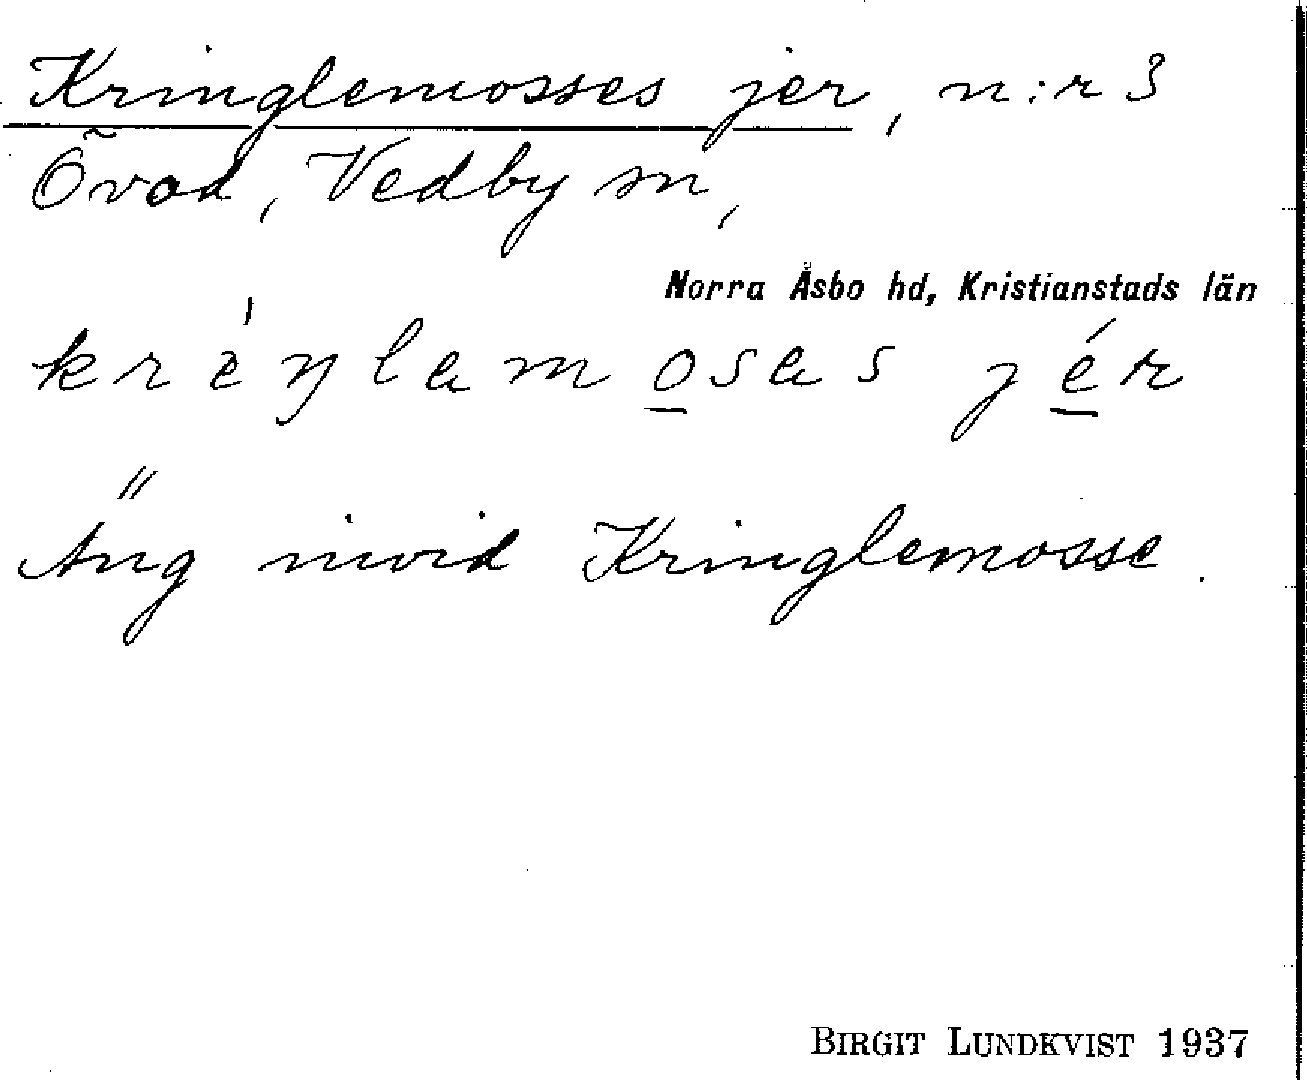 Kringlemosses jer, n:r 3
Övad, Vedby sn,
Norra Åsbo hd, Kristianstads län
kréŋlamosas jér
Äng invid Kringlemosse.
BIRGIT LUNDKVIST 1937